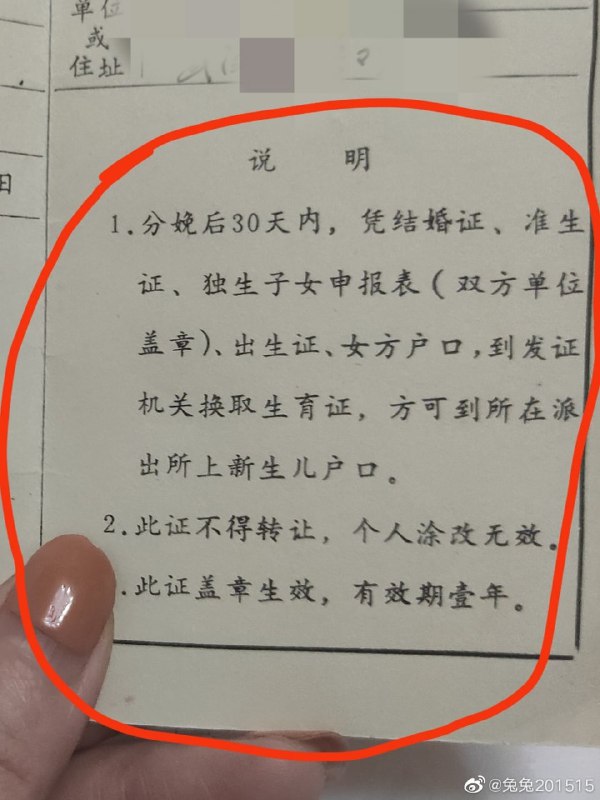 单位
或
住址
日
说 明
1.分娩后30天内，凭结婚证、准生
证、独生子女申报表(双方单位
盖章)、出生证、女方户口,到发证
机关换取生育证，方可到所在派
出所上新生儿户口。
2.此证不得转让，个人涂改无效。
.此证盖章生效，有效期壹年。
@兔兔201515